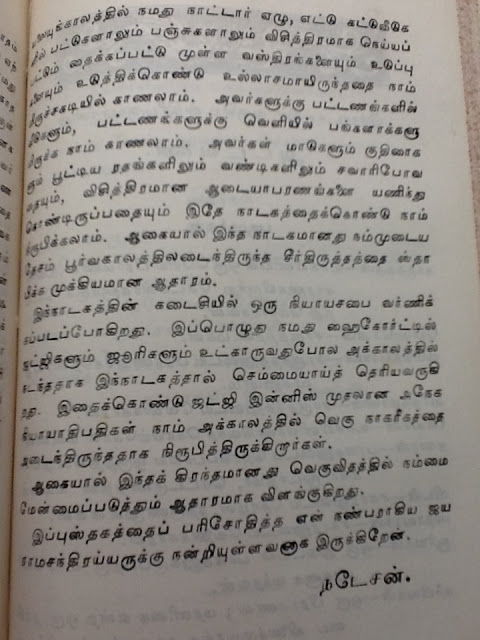 காலத்தில் நமது நாட்டார் ஏழு, எட்டு கட்டுவீடுக
பட்டுகளாலும் பஞ்சுகளாலும் விசித்திரமாக நெய்யப்
தைக்கப்பட்டு முள்ள வஸ்திரங்களையும் உடுப்பு
உடுத்திக்கொண்டு உல்லாசமாயிருந்ததை நாம்
காணலாம். அவர்களுக்கு பட்டணங்களில்
பட்டணங்களுக்கு வெளியில் பங்களாக்களு
நாம் காணலாம். அவர்கள் மாடுகளும் குதிரைக
பூட்டிய ரதங்களிலும் வண்டிகளிலும் சவாரிபோவ
தையும், விசித்திரமான ஆடையாபரணங்களை யணிந்து
கொண்டிருப்பதையும் இதே நாடகத்தைக்கொண்டு நாம்
ரூபிக்கலாம். ஆகையால் இந்த நாடகமானது நம்முடைய
தேசம் பூர்வகாலத்திலடைந்திருந்த சீர்திருத்தத்தை ஸ்தா
பிக்க முக்கியமான ஆதாரம்.
இந்நாடகத்தின் கடைசியில் ஒரு நியாயசபை வர்ணிக்
கப்படப்போகிறது. இப்பொழுது நமது ஹைகோர்ட்டில்
ஜட்ஜிகளும் ஜூரிகளும் உட்காருவதுபோல அக்காலத்தில்
நடந்ததாக இந்நாடகத்தால் செம்மையாய்த் தெரியவருகி
றது. இதைக்கொண்டு ஜட்ஜி இன்னிஸ் முதலான அநேக
நியாயாதிபதிகள் நாம் அக்காலத்தில் வெகு நாகரீகத்தை
அடைந்திருந்ததாக நிரூபித்திருக்கிறார்கள்.
ஆகையால் இந்தக் கிரந்தமானது வெகுவிதத்தில் நம்மை
மேன்மைப்படுத்தும் ஆதாரமாக விளங்குகிறது.
இப்புஸ்தகத்தைப் பரிசோதித்த என் நண்பராகிய ஜய
ராமசந்திரய்யருக்கு நன்றியுள்ளவனாக இருக்கிறேன்.
நடேசன்.